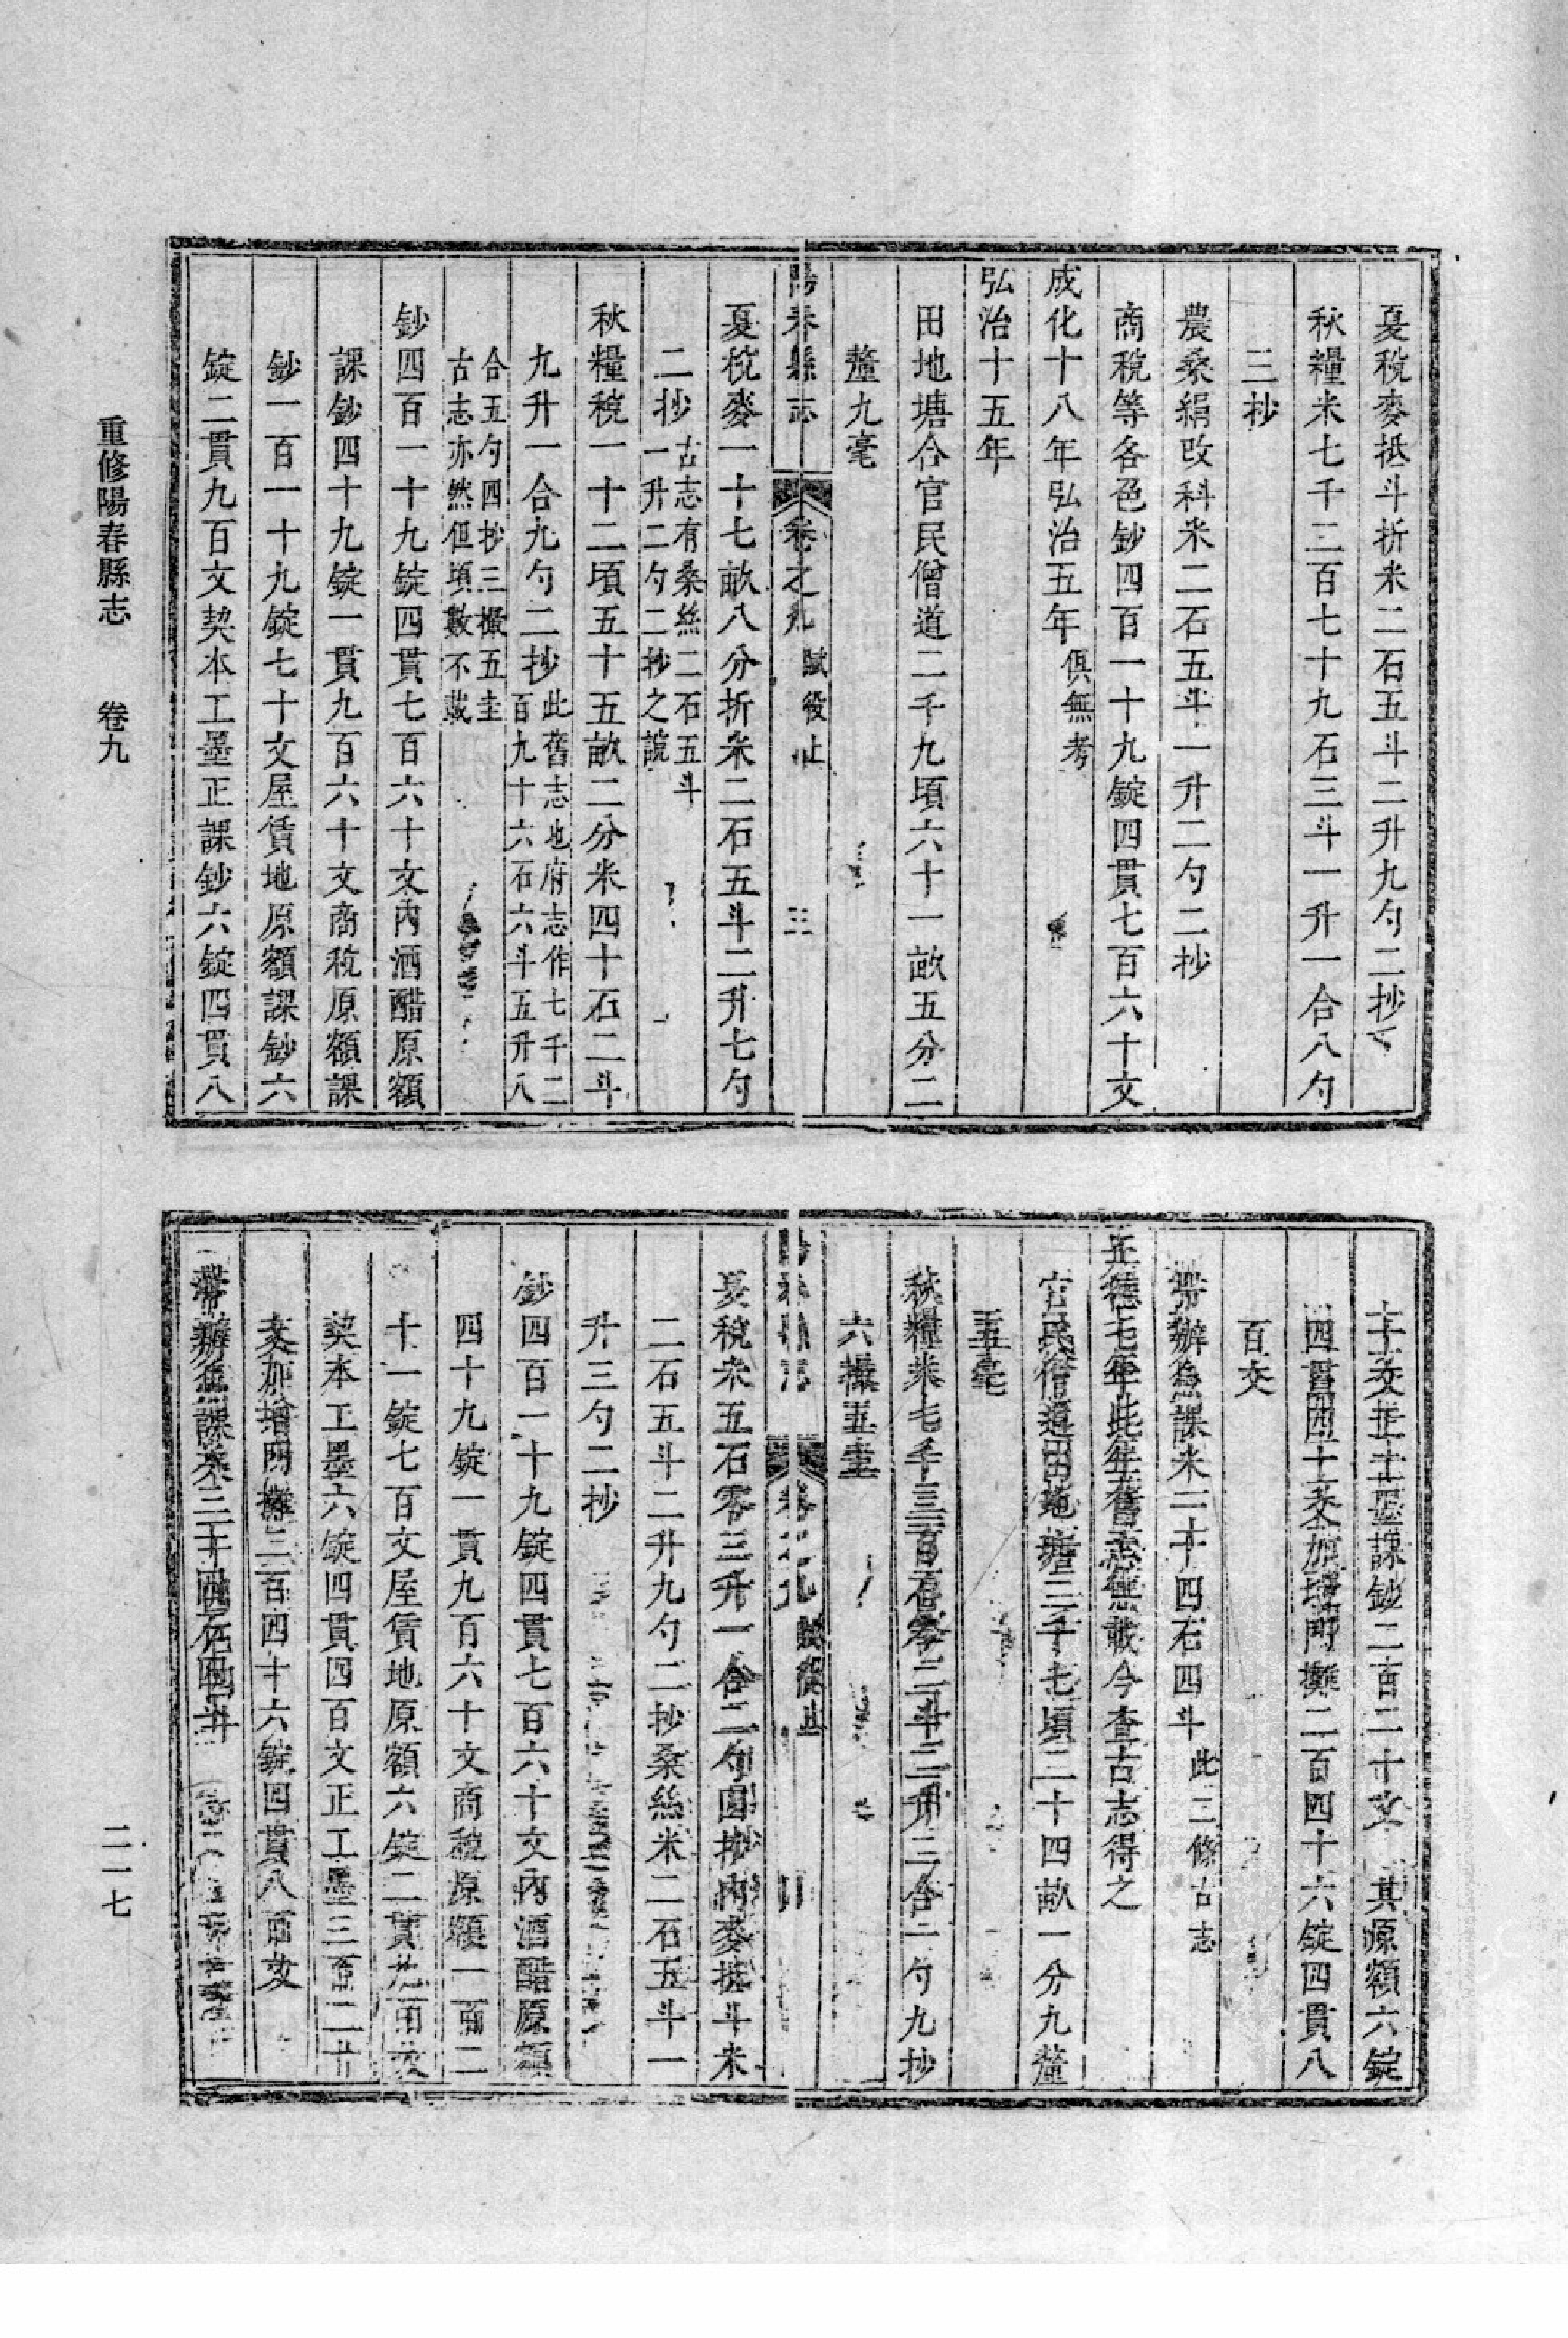 夏稅麥抵斗折米二石五斗二升九勺二抄
秋糧米七千二百七十九石三斗一升一合八勺
三抄
農桑絹改科米二石五斗一升二勺二抄
商稅等各色鈔四百一十九錠四貫七百六十文
成化十八年弘治五年俱無考
弘治十五年
田地塘合官民僧道二千九頃六十一畝五分二
釐九毫
陽春縣志 卷之九 賦役止 三
夏稅麥一十七畝八分折米二石五斗二升七勺
二抄古志有桑絲二石五斗
一升二勺二抄之說
秋糧稅一十二頃五十五畝二分米四十石二斗
九升一合九勺二抄此舊志也府志作七千二
百九十六石六斗五升八
合五勺四抄三撮五圭
古志亦然但頃數不載
鈔四百一十九錠四貫七百六十文內酒醋原額
課鈔四十九錠一貫九百六十文商稅原額課
鈔一百一十九錠七十文屋賃地原額課鈔六
錠二貫九百文契本工墨正課鈔六錠四貫八
十文正工墨課鈔二百二十文其原額六錠
四貫四十文加增門攤二百四十六錠四貫八
百文
帶辦魚課米二十四石四斗此三條古志
正德七年此年舊志無載今查古志得之
官民僧道田地塘二千七頃二十四畝一分九釐
五毫
秋糧米七千三百石零二斗二升三合二勺九抄
六撮五圭
陽春縣志 卷之九 賦役止 四
夏稅米五石零三升一合二勺四抄內麥抵斗米
二石五斗二升九勺二抄桑絲米二石五斗一
升三勺二抄
鈔四百一十九錠四貫七百六十文內酒醋原額
四十九錠一貫九百六十文商稅原額一百二
十一錠七百文屋賃地原額六錠二貫九百文
契本工墨六錠四貫四百文正工墨三百二十
文加增門攤二百四十六錠四貫八百文
帶辦魚課米二十四石四斗
重修陽春縣志 卷九
二一七